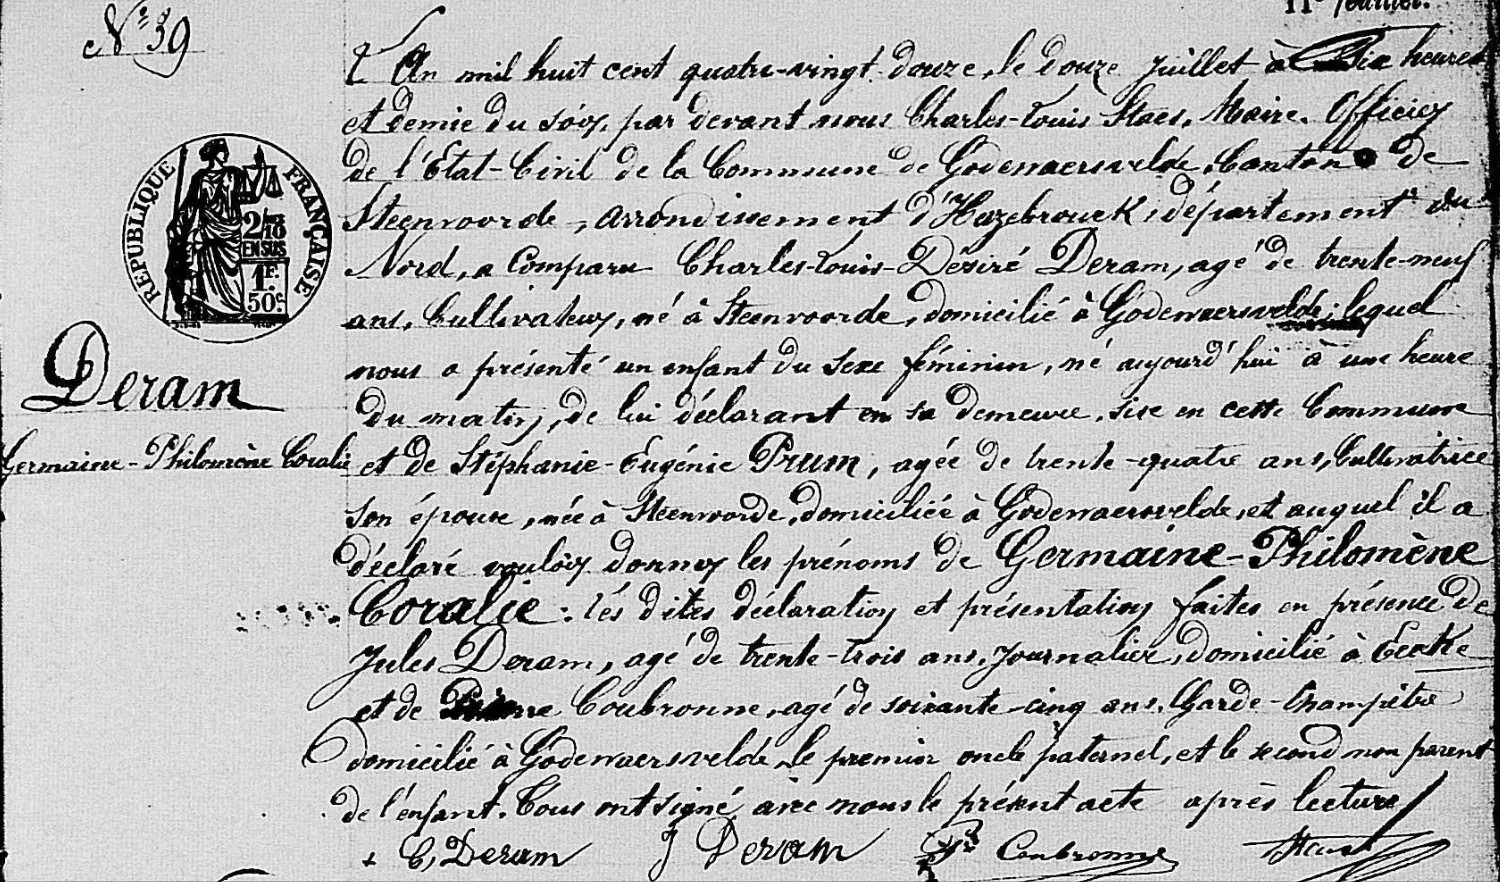 11e feuillet.
N° 39
L'An mil huit cent quatre-vingt-douze, le douze Juillet à Six heures
et demie du soir, par devant nous Charles-Louis Staes, Maire, Officier
de l'Etat-Civil de la Commune de Godewaersvelde, Canton de
Steenvoorde, arrondissement d'Hazebrouck, département du
Nord, a comparu Charles-Louis-Désiré Deram, agé de trente-neuf
ans, Cultivateur, né à Steenvoorde, domicilié à Godewaersvelde, lequel
nous a présenté un enfant du sexe féminin, né aujourd'hui à une heure
du matin, de lui déclarant en sa demeure, sise en cette Commune
et de Stéphanie-Eugénie Prum, agée de trente-quatre ans, Cultivatrice
son épouse, née à Steenvoorde, domiciliée à Godewaersvelde, et auquel il a
déclaré vouloir donner les prénoms de Germaine-Philomène
Coralie : lés dites déclaration et présentation faites en présence de
Jules Deram, agé de trente-trois ans, Journalier, domicilié à Eecke
et de Coubronne, agé de soixante-cinq ans, Garde-Champêtre
domicilié à Godewaersvelde, le premier oncle paternel, et le second non parent
de l'enfant. Tous ont signé avec nous le présent acte après lecture
RÉPUBLIQUE FRANÇAISE
2/10
EN SUS
1F.
50c.
Deram
Germaine-Philomène Coralie
C, Deram J Deram Coubronne Staes